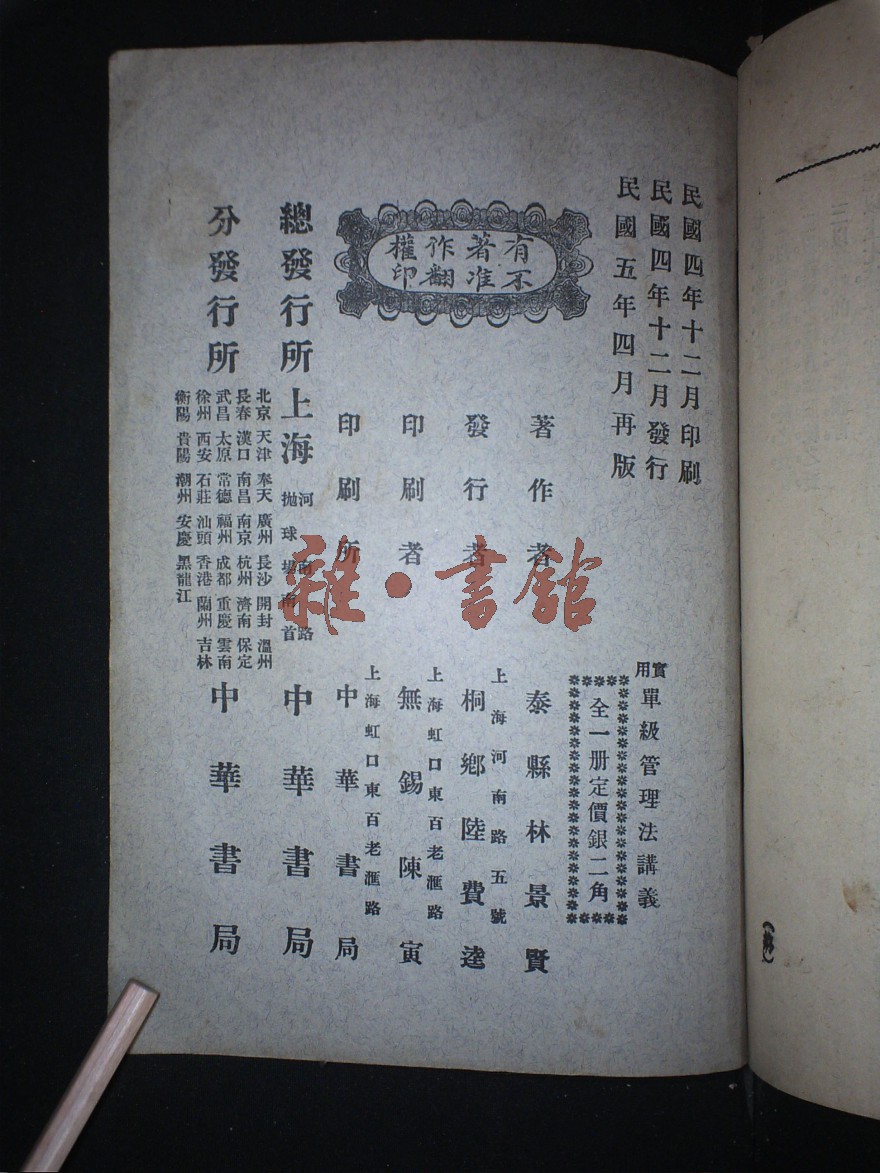 民國四年十二月印刷
民國四年十二月發行
民國五年四月再版
實用單級管理法講義
全一册定價銀二角
有著作權
不准翻印
著作者 泰縣林景賢
上海河南路五號
發行者 桐鄉陸費逵
上海虹口東百老滙路
印刷者 無錫陳寅
上海虹口東百老滙路
印刷所 中華書局
總發行所 上海 河南路 拋球場南首 中華書局
分發行所
北京 天津 奉天 廣州 長沙 開封 溫州
長春 漢口 南昌 南京 杭州 濟南 保定
武昌 太原 常德 福州 成都 重慶 雲南
徐州 西安 石莊 汕頭 香港 蘭州 吉林
衡陽 貴陽 潮州 安慶 黑龍江
中華書局
雜·書館